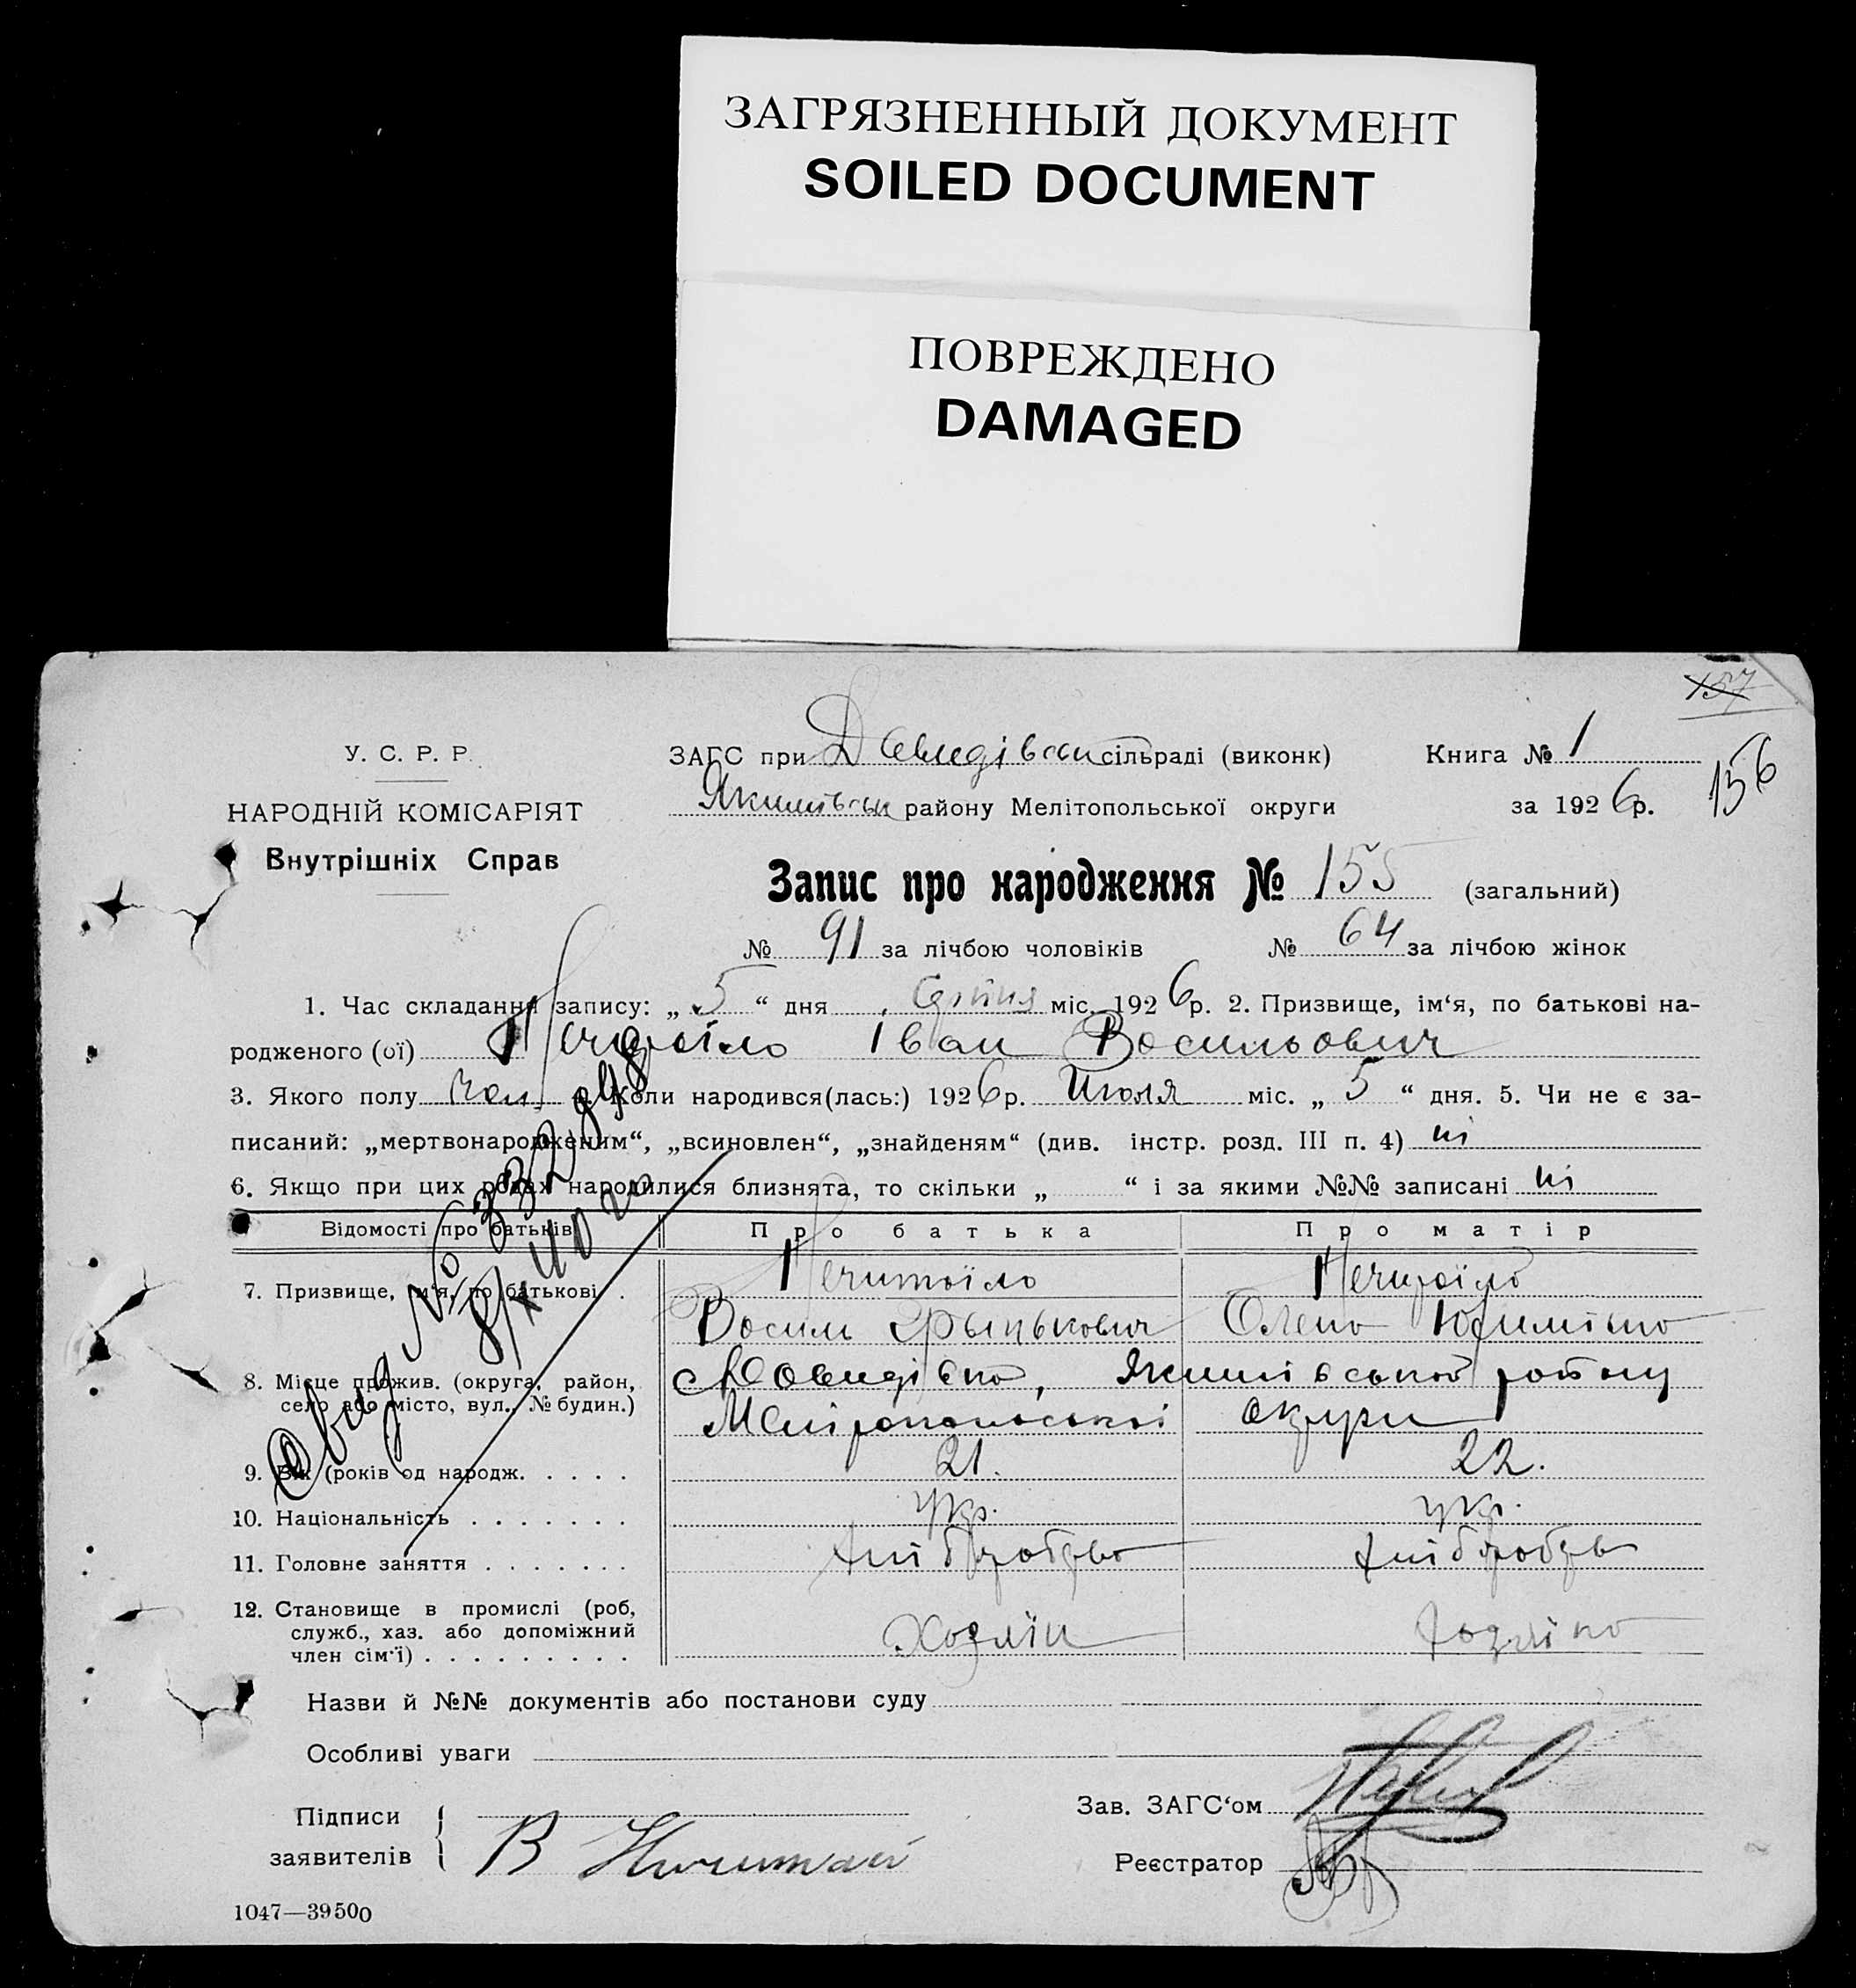 ЗАГРЯЗНЕННЫЙ ДОКУМЕНТ
SOILED DOCUMENT
ПОВРЕЖДЕНО
DAMAGED
157
156
У. С. Р. Р.
НАРОДНІЙ КОМІСАРІЯТ
Внутрішніх Справ
ЗАГС при Давидівськ сільраді (виконк) Книга № 1
Якимівськ району Мелітопольської округи за 1926 р.
Запис про народження № 155 (загальний)
№ 91 за лічбою чоловіків № 64 за лічбою жінок
1. Час складання запису: „ 5 “ дня міс. 1926 р. 2. Призвище, ім‘я, по батькові на-
родженого (ої) Іван Васильович
3. Якого полу чол. 4. Коли народився(лась:) 1926 р. Июля міс. „ 5 “ дня. 5. Чи не є за-
писаний: „мертвонародженим“, „всиновлен“, „знайденям“ (див. інстр. розд. III п. 4) ні
6. Якщо при цих родах народилися близнята, то скільки „ “ і за якими №№ записані ні
Відомості про батьків Про батька Про матір
7. Призвище, ім‘я, по батькові .
Василь Олена Юхимівна
8. Місце прожив. (округа, район, Давидівка, Якимівської району
село або місто, вул., № будин.) Мелітопольської округи
9. Вік (років од народж. . . . . 21. 22.
10. Національність . . . . . . . укр. укр.
11. Головне заняття . . . . . . . хліборобство хліборобств
12. Становище в промислі (роб,
служб., хаз. або допоміжний Хазяїн хазяїна
член сім‘ї) . . . . . . . . .
Назви й №№ документів або постанови суду
Особливі уваги
Зав. ЗАГС‘ом
Підписи
заявителів В
Реєстратор
1047—39500